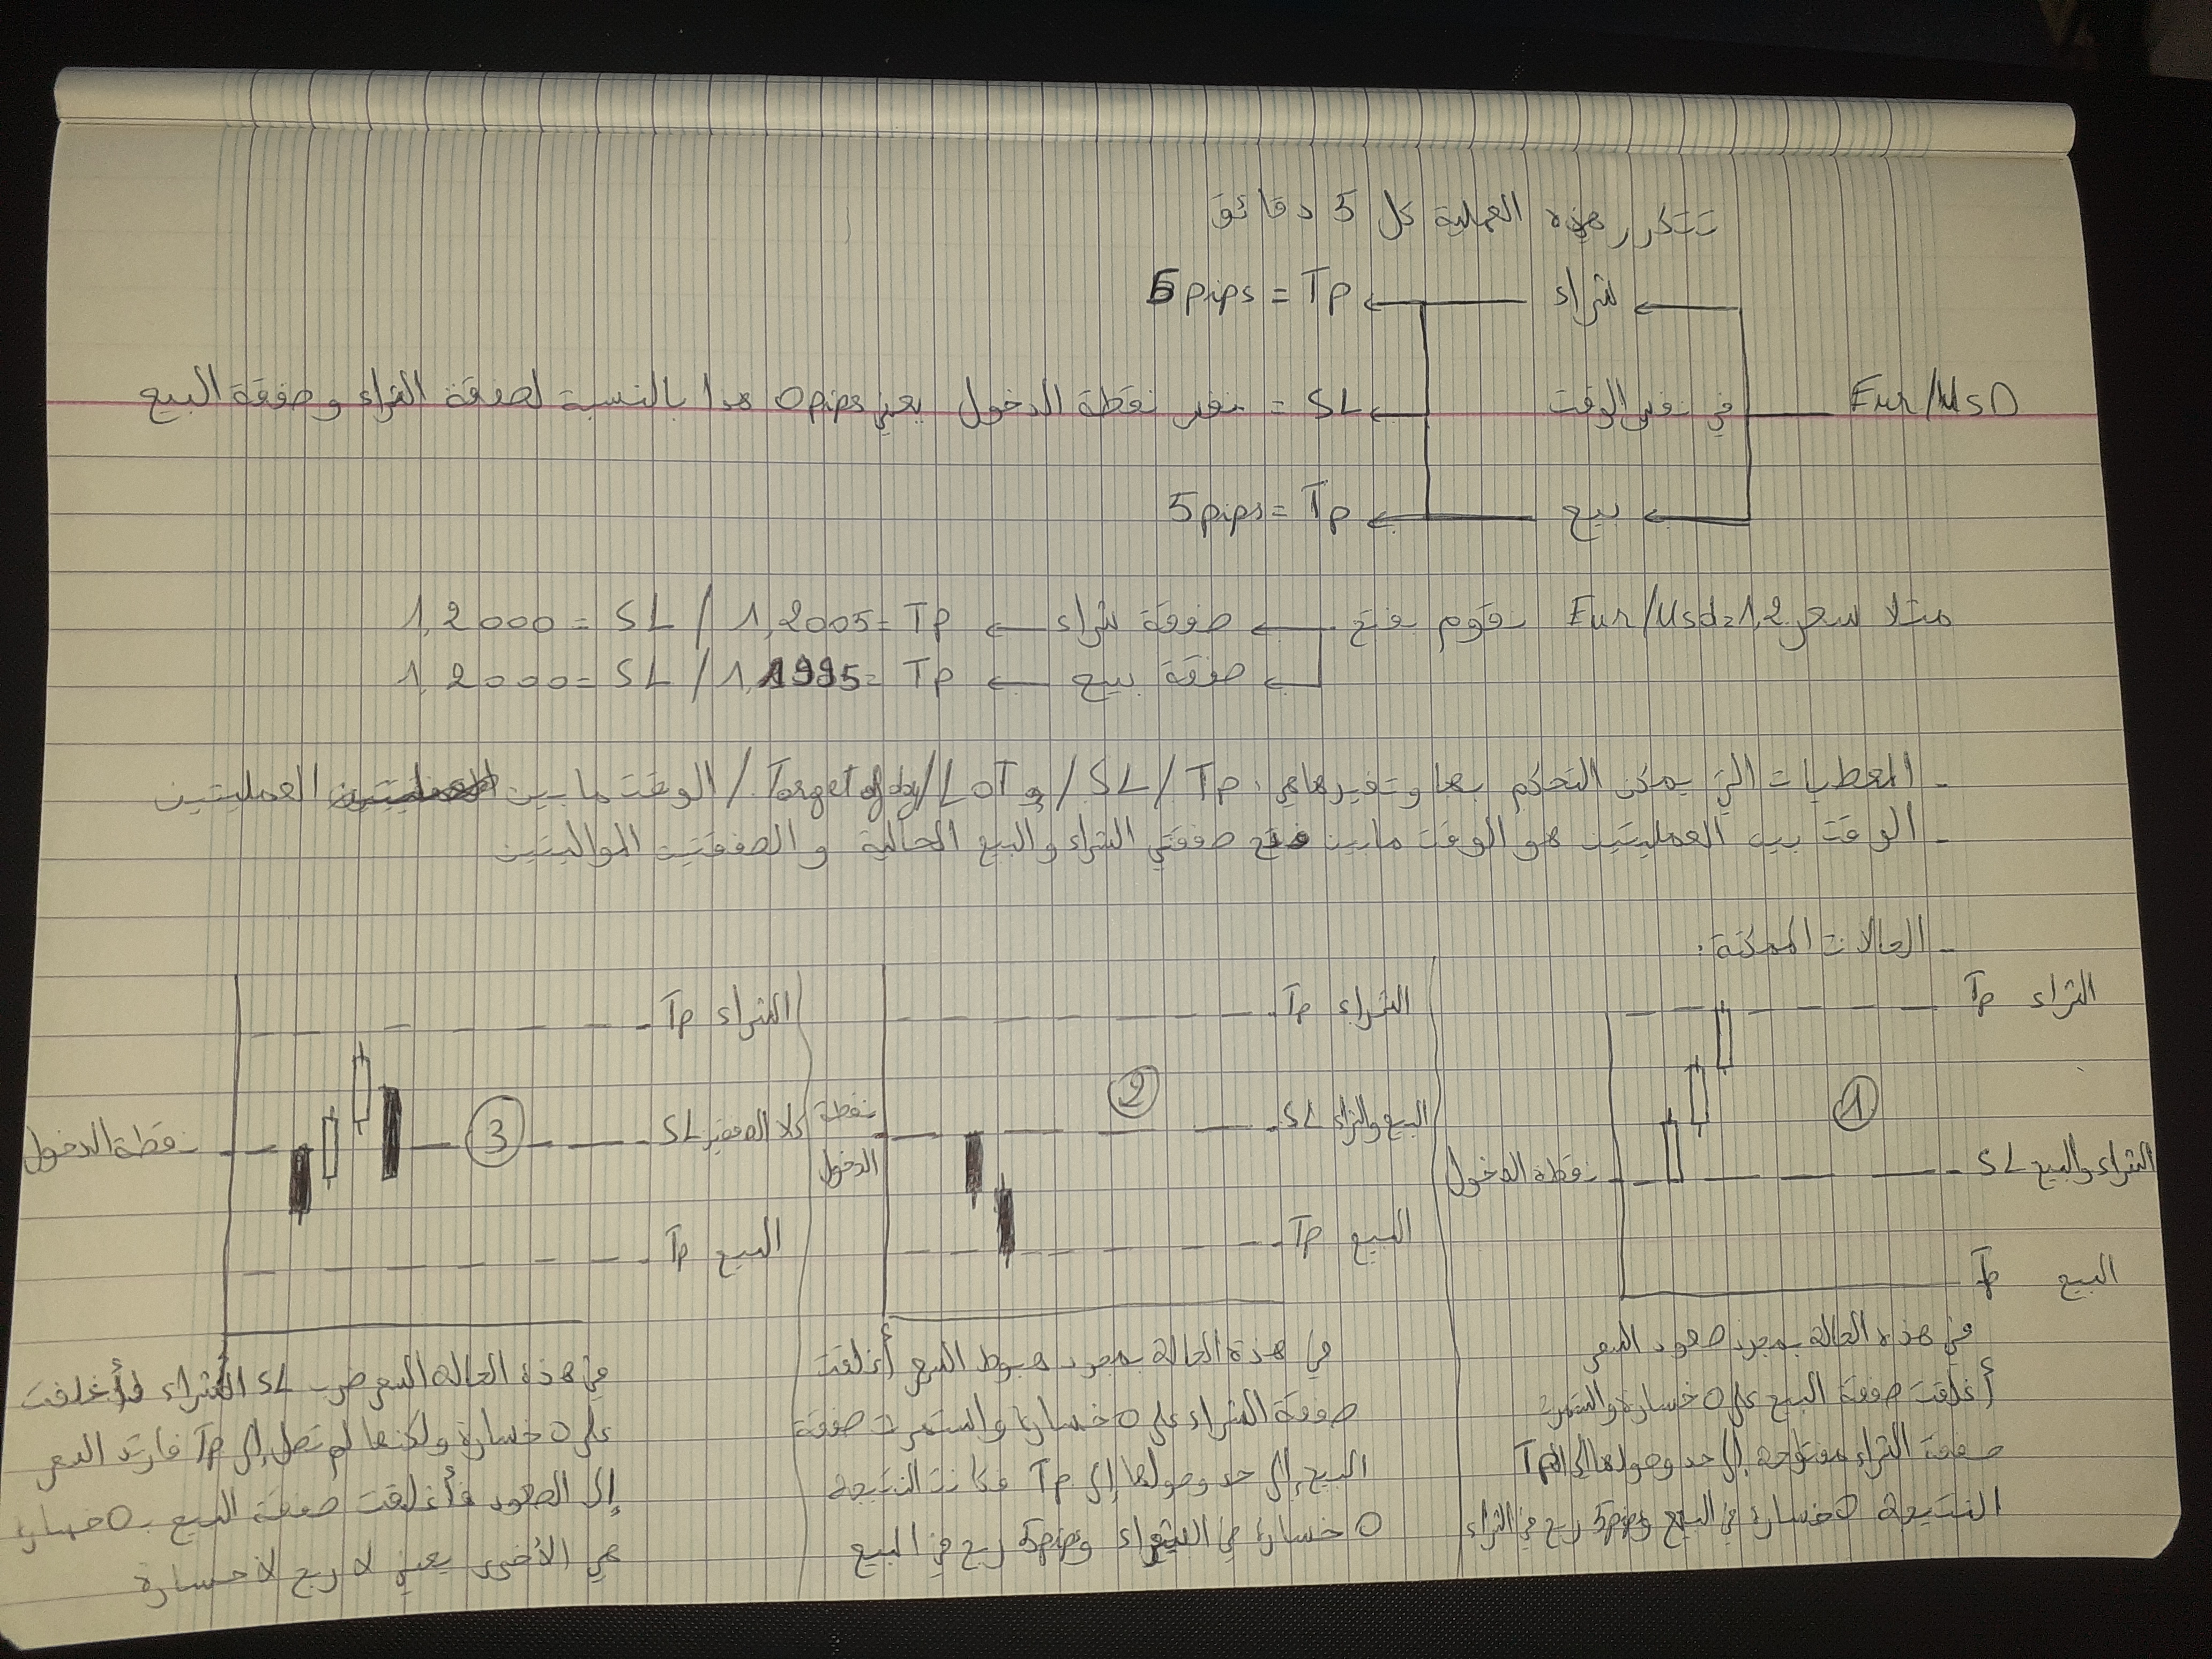 تتكرر هذه العملية كل 5 دقائق
شراء
5pips = Tp
Eur/UsD
في نفس الوقت
SL = نفس نقطة الدخول يعني 0pips هدا بالنسبة لصفقة الشراء وصفقة البيع
بيع
5pips = Tp
مثلا سعر Eur/Usd=1,2 نقوم بفتح صفقة شراء 1,2000 = SL / 1,2005 = Tp
صفقة بيع 1,2000 = SL / 1,1995 = Tp
- المعطيات التي يمكن التحكم بها وتغييرها هي: Tp / SL / و LOT / Target of day / الوقت ما بين العمليتين
- الوقت بين العمليتين هو الوقت ما بين فتح صفقتي الشراء والبيع الحالية والصفقتين المواليتين
- الحالات الممكنة:
الشراء Tp
1
الشراء والبيع SL
نقطة الدخول
البيع Tp
في هذه الحالة بمجرد صعود السعر
أغلقت صفقة البيع على 0 خسارة واستمرت
صفقة الشراء مفتوحة إلى حد وصولها إلى Tp
النتيجة 0 خسارة في البيع و 5pips ربح في الشراء
الشراء Tp
2
البيع والشراء SL
نقطة
الدخول
البيع Tp
في هذة الحالة بمجرد هبوط السعر أغلقت
صفقة الشراء على 0 خسارة واستمرت صفقة
البيع إلى حد وصولها إلى Tp فكانت النتيجة
0 خسارة في الشراء و 5pips ربح في البيع
الشراء Tp
3
كلا الصفقتين SL
نقطة الدخول
البيع Tp
في هذة الحالة السعر ضرب SL الشراء فأغلقت
على 0 خسارة ولكنها لم تصل إلى Tp فارتد السعر
إلى الصعود فأغلقت صفقة البيع بـ 0 خسارة
هي الأخرى يعني لا ربح لا خسارة